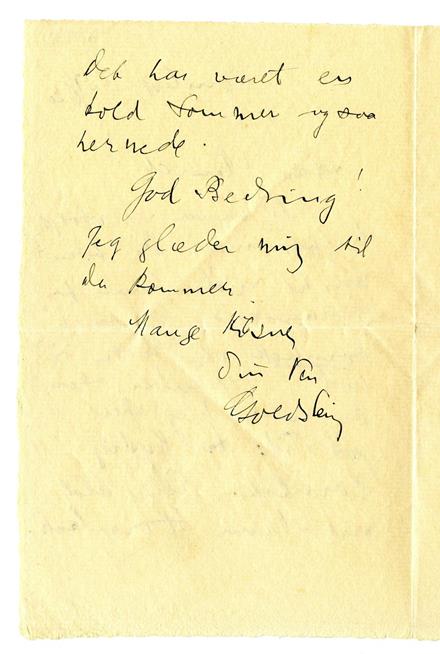 Det har været en
kold Sommer ogsaa
hernede.
God Bedring!
Jeg glæder mig til
du kommer.
Mange Hilsner
Din Ven
Goldstein